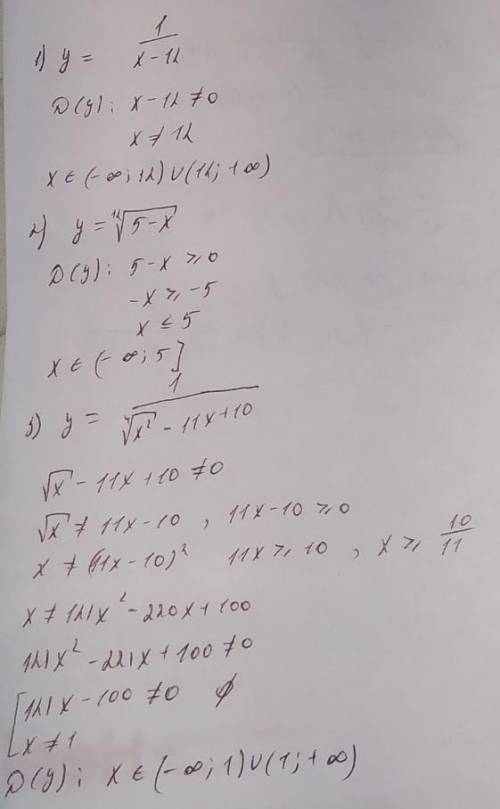 1) y = 1/(x-12)
D(y): x-12 ≠ 0
x ≠ 12
x ∈ (-∞; 12) ∪ (12; +∞)
2) y = ¹²√(5-x)
D(y): 5-x ≥ 0
-x ≥ -5
x ≤ 5
x ∈ (-∞; 5]
3) y = 1/(⁴√(x²) - 11x+10)
√x - 11x+10 ≠ 0
√x ≠ 11x-10 , 11x-10 ≥ 0
x ≠ (11x-10)² 11x ≥ 10 , x ≥ 10/11
x ≠ 121x² - 220x+100
121x² - 221x+100 ≠ 0
[121x-100 ≠ 0 ∅
x ≠ 1
D(y): x ∈ (-∞; 1) ∪ (1; +∞)